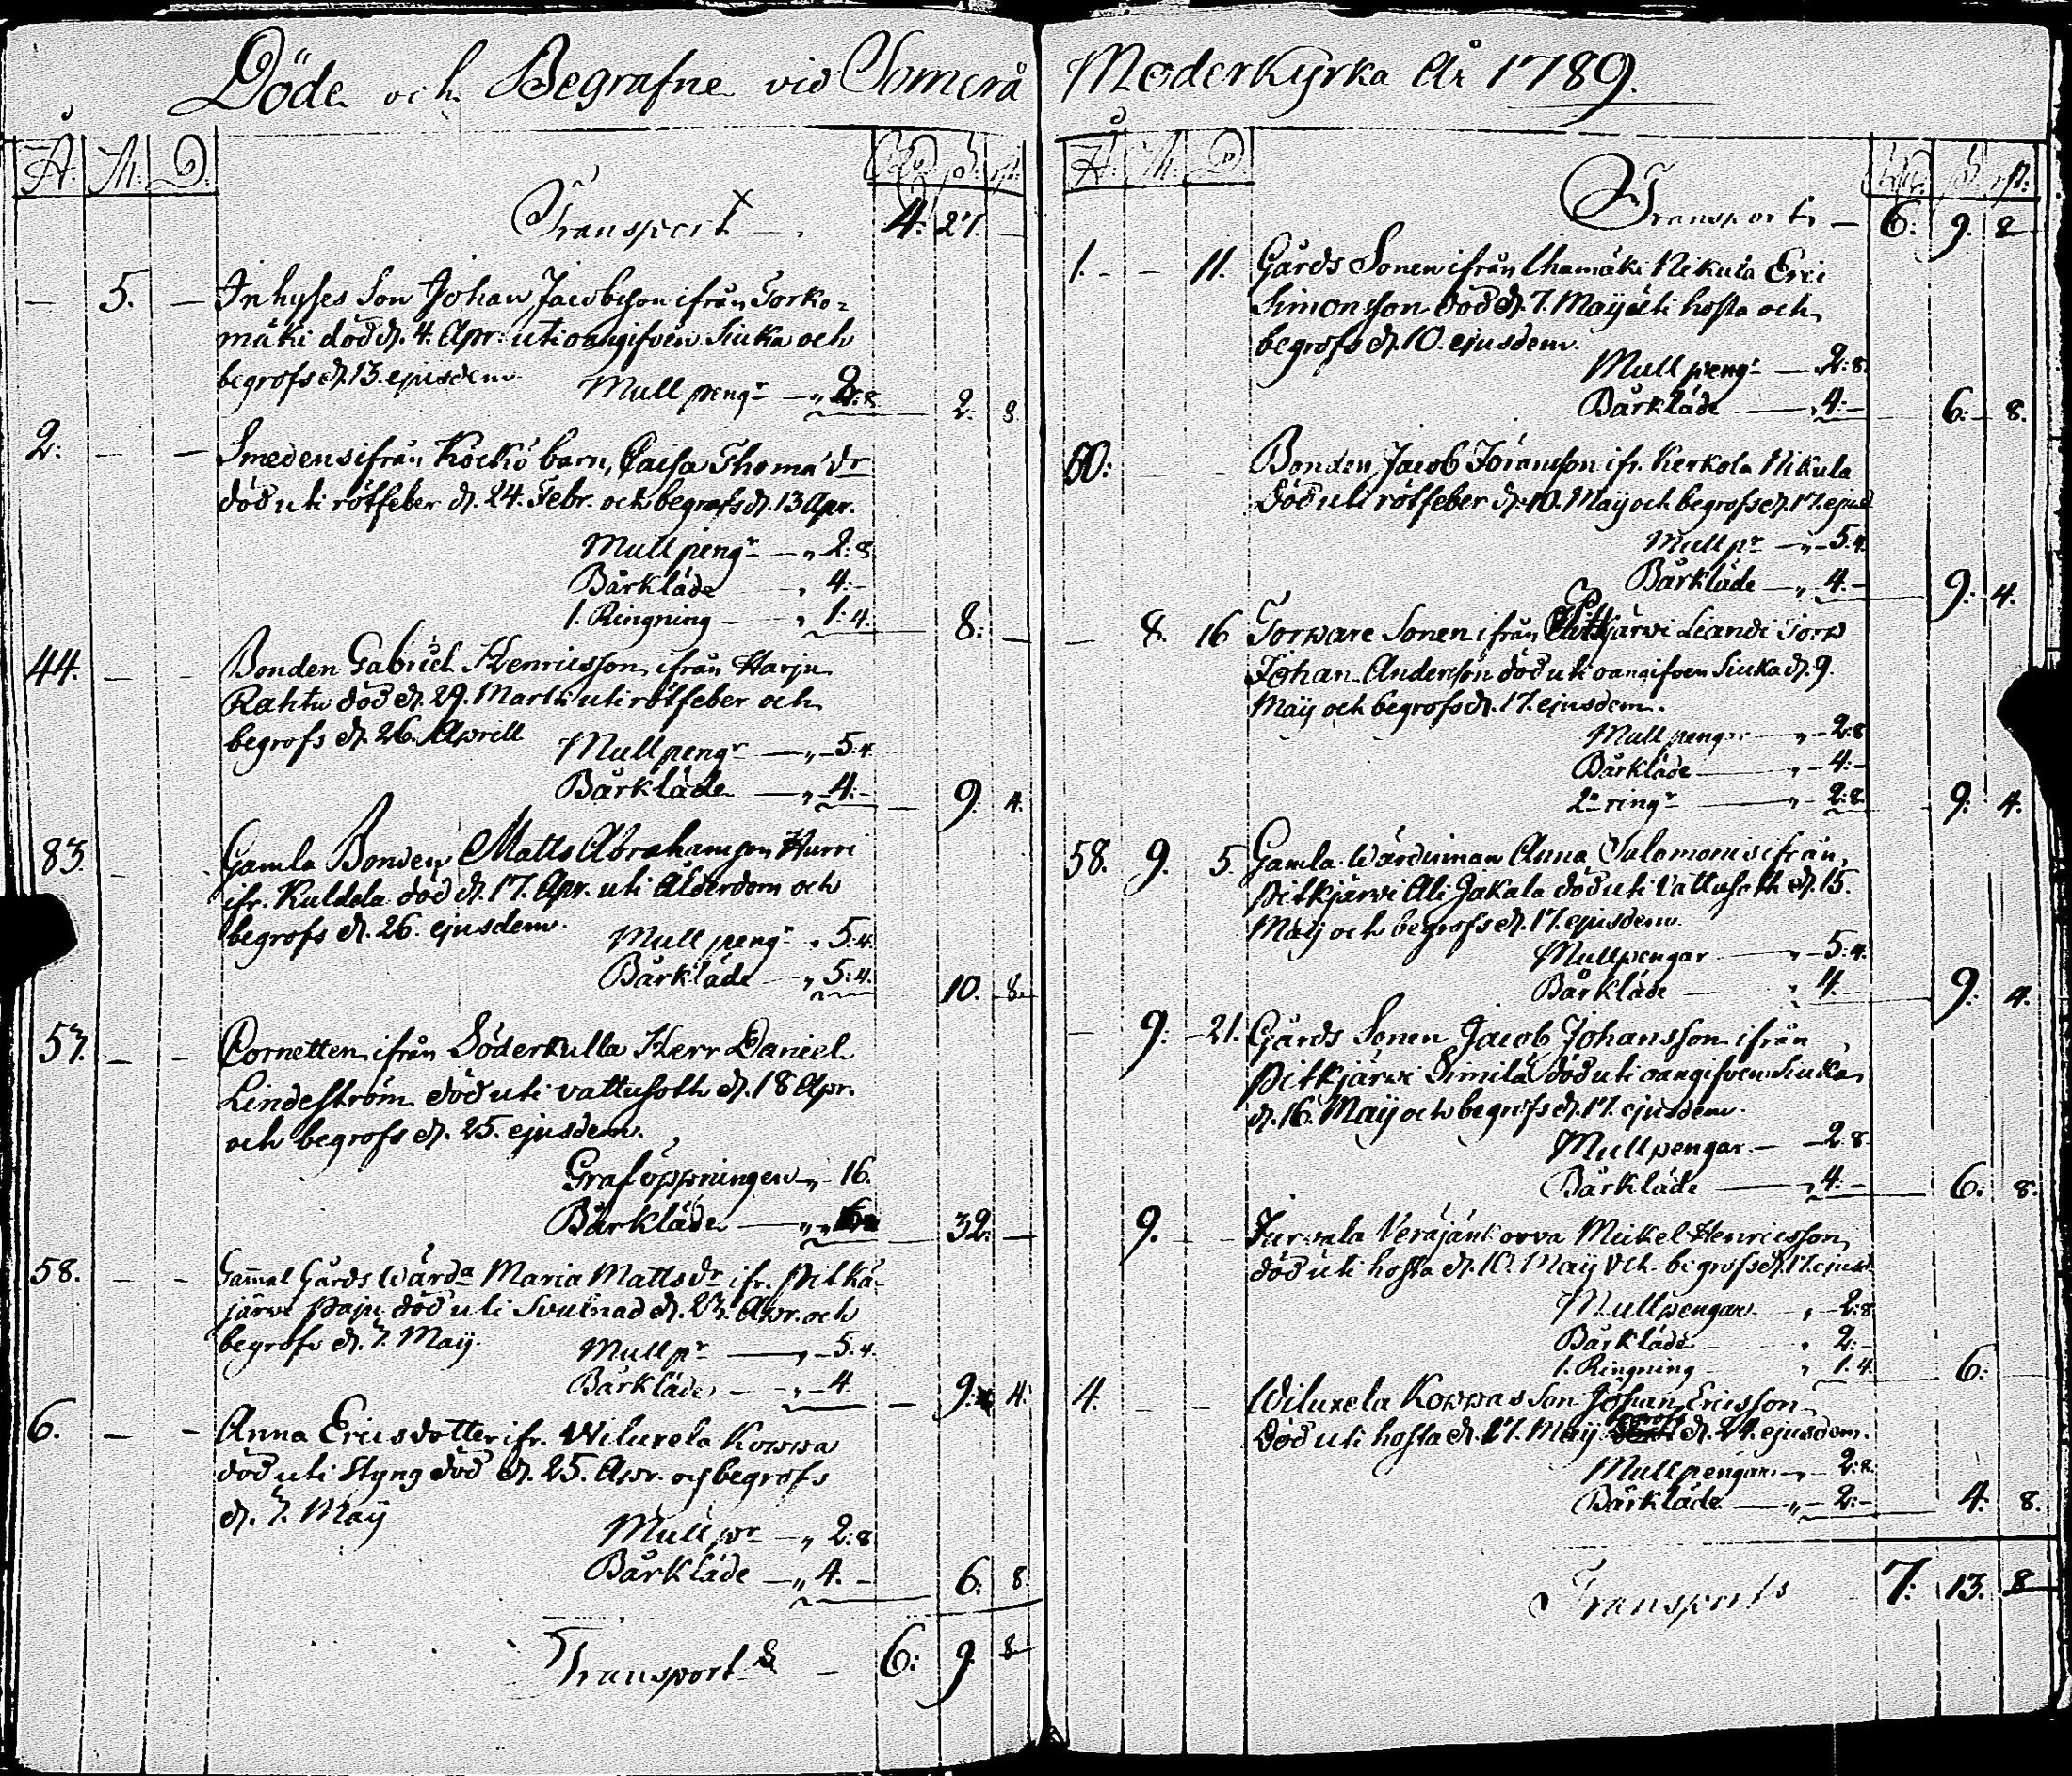 Döde och Begrafne vid Somerå
Å. M. D. Rd ß. rst.
Transport — 4. 27. —
— 5. — Inhyses Son Johan Jacobsson ifrån Torko=
mäki död d. 4. Apr. uti oangifven Siuka och
begrofs d. 13. ejusdem
Mull pengr — „ 2:8. 2. 8.
2. — — Smedens ifrån Köckö barn, Caisa Thomædr
död uti rötfeber d. 24. Febr. och begrofs d. 13 Apr.
Mull pengr — „ 2:8.
Bårkläde „ 4:—
1. Ringning — „ 1:4. 8: —
44. — — Bonden Gabriel Henricsson ifrån Harju
Rahtu död d. 29. Martii uti rötfeber och
begrofs d. 26. Aprill
Mull pengr — „ 5:4.
Bårkläde — „ 4:— 9. 4.
83. — Gamla Bonden Matts Abrahamson Hurri
ifr. Kuldela död d. 17. Apr. uti Ålderdom och
begrofs d. 26. ejusdem.
Mull pengr „ 5:4.
Bårkläde „ 5:4. 10. 8.
57. — — Cornetten ifrån Söderkulla Herr Daniel
Lindeström död uti vattusoth d. 18 Apr.
och begrofs d. 25. ejusdem.
Graf öppningen „ 16.
Bårkläde — „ 16 32. —
58. — — Gammal Gårds Wärda Maria Mattsdr ifr. Pitkä-
järvi Paju död uti Svulnad d. 27. Apr. och
begrofs d. 7. Maij.
Mull pr — „ 5:4.
Bårkläde — „ 4. 9. 4.
6. — — Anna Ericsdotter ifr. Wiluxela Kowwa
död uti Styng död d. 25. Apr. och begrofs
d. 7. Maij
Mull pr — „ 2:8
Bårkläde — „ 4. — 6. 8.
Transport — 6: 9. 8
Moderkyrka År 1789.
Å. M. D. Rd. ß. rst.
Transport — 6: 9. 2
1. — — 11. Gårds Sonen ifrån Ihamäki Nikula Eric
Simonsson död d. 7. Maij uti hosta och
begrofs d. 10. ejusdem.
Mull pengr — 2:8.
Bårkläde — „ 4:— 6: 8.
60: — — Bonden Jacob Jöransson ifr. Kerkola Nikula
död uti rötfeber d. 10. Maij och begrofs d. 17. ejusd
Mull pr — „ 5:4.
Bårkläde — „ 4:— 9: 4.
— 8. 16 Torpare Sonen ifrån Pitkjärvi Liandi Torp
Johan Andersson död uti oangifven Siuka d. 9.
Maij och begrofs d. 17. ejusdem.
Mull pengr — „ 2:8
Bårkläde — „ 4:—
2ne ringr — „ 2:8. 9: 4.
58. 9. 5. Gamla Wärdinnan Anna Salomonis ifrån
Pitkjärvi Ali Jakala död uti Vattusoth d. 15.
Maij och begrofs d. 17. ejusdem.
Mullpengar — „ 5:4.
Bårkläde „ 4.— 9: 4.
— 9: 21. Gårds Sonen Jacob Johansson ifrån
Pitkjärvi Simila död uti oangifven Siuka
d. 16. Maij och begrofs d. 17. ejusdem.
Mullpengar — 2:8.
Bårkläde — „ 4:— 6: 8.
9. — — Jurvala Veräjänkorva Mickel Henricsson
död uti hosta d. 10. Maij och begrofs d. 17. ejusd.
Mullpengar „ 2:8
Bårkläde „ 2:—
1. Ringning „ 1.4. 6:
4. — — Wiluxela Kowwas Son Johan Ericsson
död uti hosta d. 17. Maij begrofs d. 24. ejusdem.
Mullpengar „ 2:8.
Bårkläde — „ 2:— 4: 8.
Transport 7: 13. 8